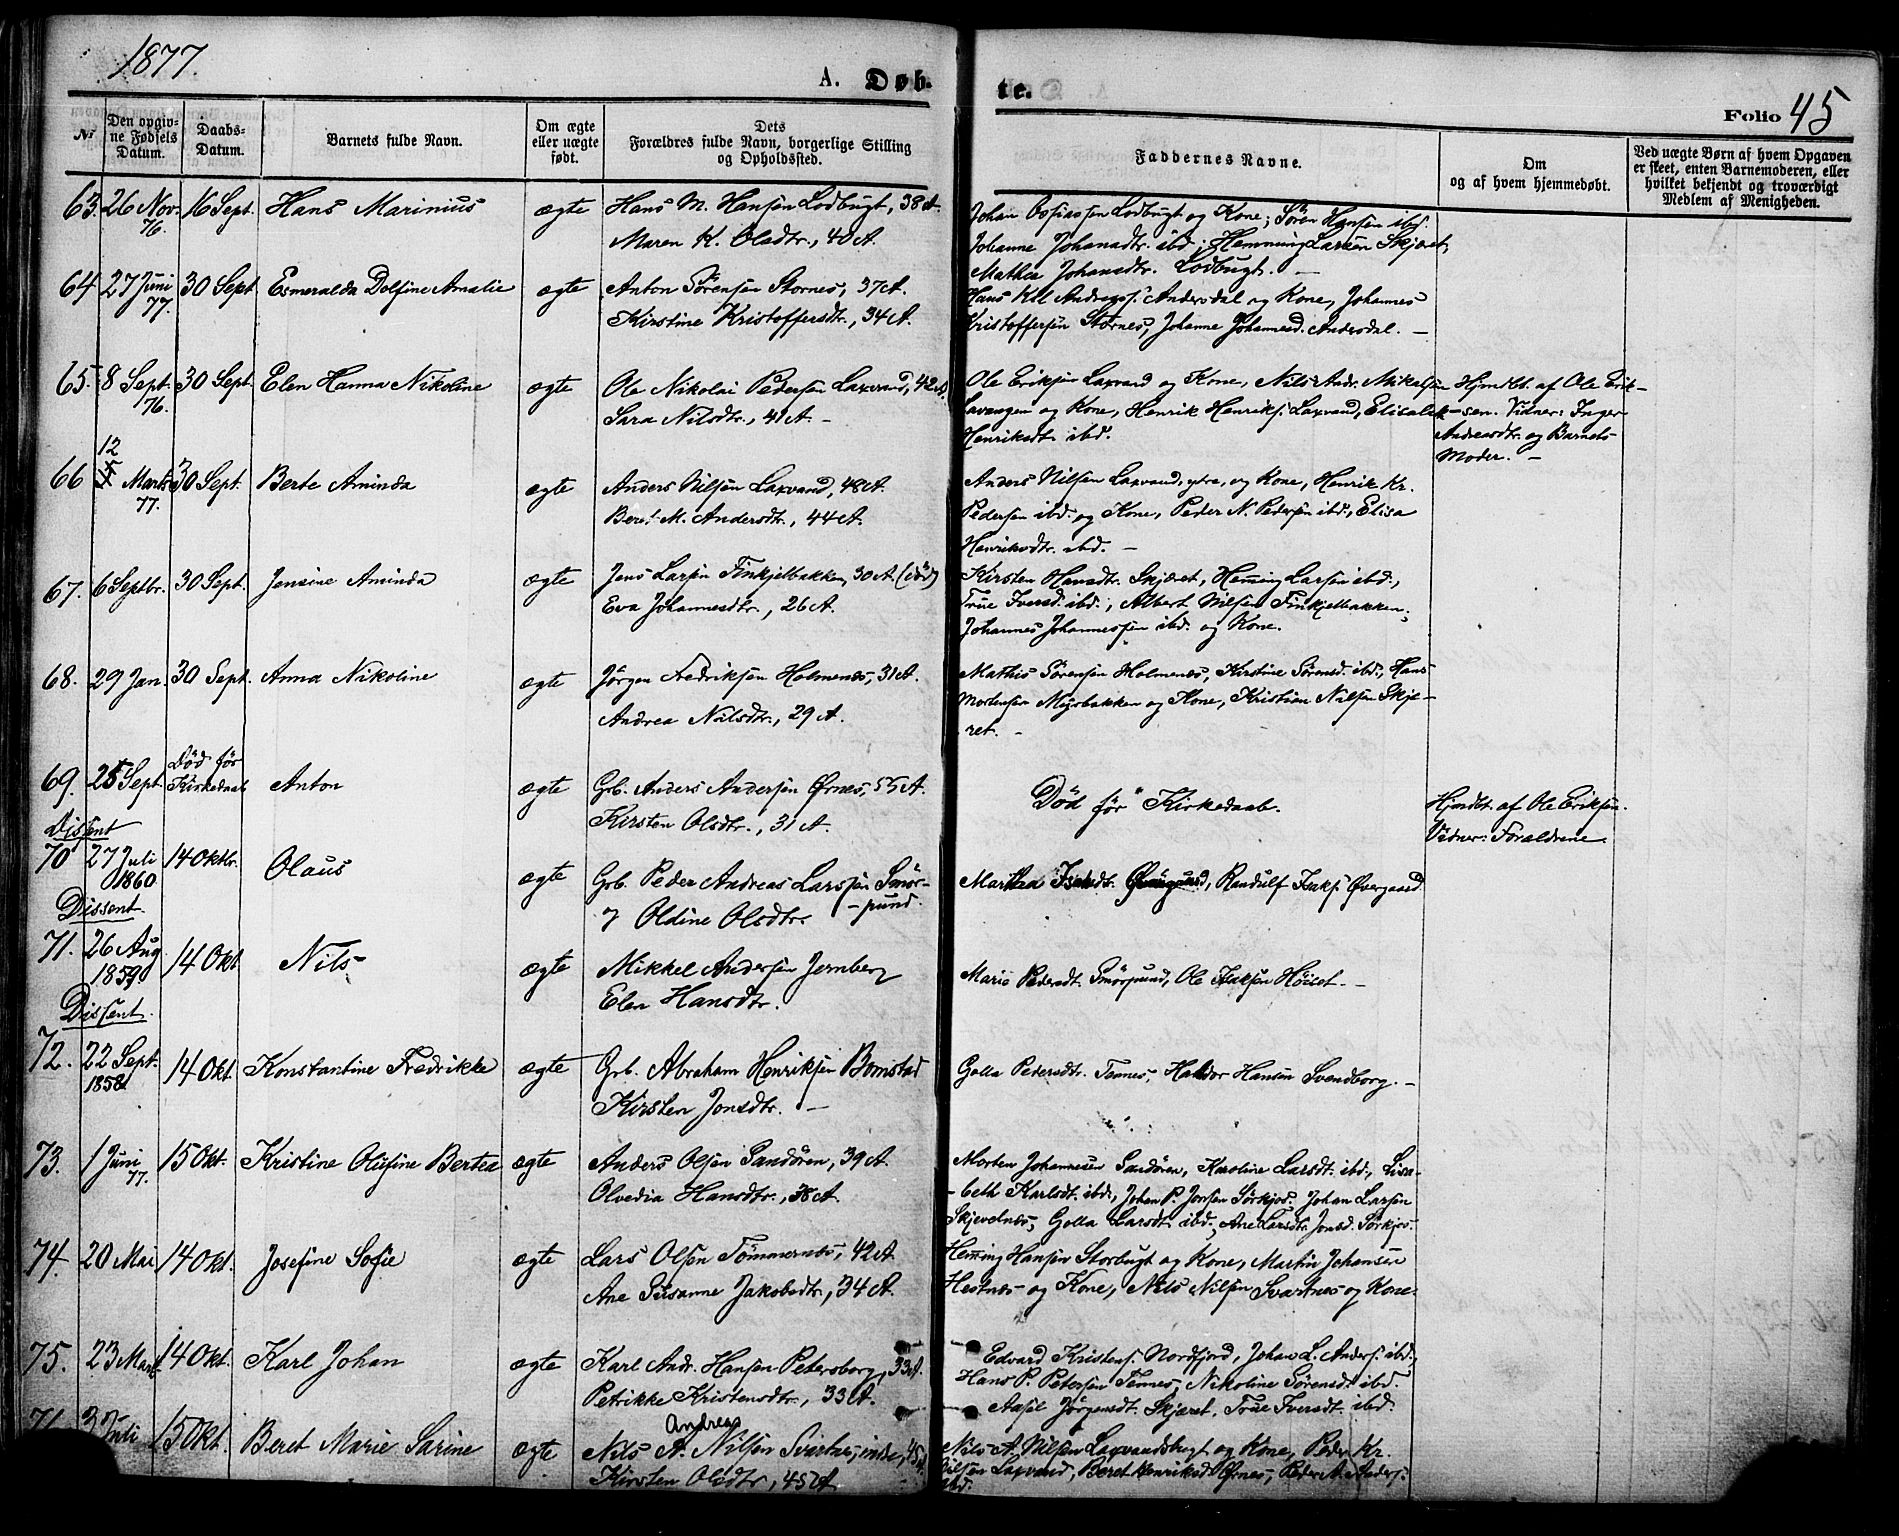 1877.
A. Døb-
te.
Folio 45
№
Den opgiv-
ne Fødsels
Datum.
Daabs-
Datum.
Barnets fulde Navn.
Om ægte
eller uægte
født.
Dets
Forældres fulde Navn, borgerlige Stilling
og Opholdssted.
Faddernes Navne.
Om
og af hvem hjemmedøbt.
Ved uægte Børn af hvem Opgaven
er skeet, enten Barnemoderen, eller
hvilket bekjendt og troværdigt
Medlem af Menigheden.
63. 26 Nov. 76. 16 Sept. Hans Marinius ægte Hans M. Hansen Lodbugt, 38 A.
Maren K. Olsdtr., 40 A.
Johan Lodbugt og Kone; Søren Hansen ibd.
Johanne Johansdtr. ibd.; Hemming Larsen Skjæret,
Mathea Johansdtr. Lodbugt. –
64 27 Juni 77. 30 Sept Esmeralda Dolfine Amalie ægte Anton Sørensen Stornes, 37 A.
Kirstine Kristoffersdtr., 34 A.
Hans Andreass. Andersdal og Kone, Johannes
Kristoffersen Stornes, Johanne Johannesd. Andersdal. –
65. 8 Sept. 76. 30 Sept. Elen Hanna Nikoline ægte Ole Nikolai Pedersen Laxvand, 42 A.
Sara Nilsdtr., 41 A. –
Ole Eriksen Laxvand og Kone, Nils Andr. Mikelsen
Lavangen og Kone, Henrik Henriks. Laxvand, Elisabet
Henriksdt. ibd.
Hjmdbt. af Ole Erik-
sen. Vidner: Inger
Andreasdtr. og Barnets
Moder. –
66 12 Marts 77. 30 Sept. Berte Aminda ægte Anders Nilsen Laxvand, 48 A.
Beret M. Andersdtr., 44 A.
Anders Nilsen Laxvand, ytre, og Kone, Henrik Kr.
Pedersen ibd. og Kone, Peder N. Pedersen ibd., Elisa
Henriksdtr. ibd. –
67. 6 Septbr. 30 Sept. Jensine Aminda ægte Jens Larsen Finkjelbakken, 30 A. (død)
Eva Johannesdtr., 26 A.
Kirsten Hansdtr. Skjæret, Heming Larsen ibd.,
Trine Iversd. ibd., Albert Nilsen Finkjelbakken,
Johannes Johannessen ibd. og Kone.
68. 29 Jan. 30 Sept. Anna Nikoline ægte Jörgen Fredriksen Holmenes, 31 A.
Andrea Nilsdtr., 29 A.
Mathis Sörensen Holmenes, Kirstine Sörensd. ibd., Hans
Mortensen Myrbakken og Kone, Kristian Nilsen Skjæ-
ret. –
69. 25 Sept. Død før Kirkedaab Anton ægte Grb. Anders Andersen Ørnes, 55 A.
Kirsten Olsdtr., 31 A.
Død før Kirkedaab.
Hjmdbt. af Ole Eriksen.
Vidner: Forældrene
Dissent
70 27 Juli 1860 14 Oktbr. Olaus ægte Grb. Peder Andreas Larssen Smör-
pund.
Oldine Olsdtr.
Martha Isaksdt. Øvergaard, Randulf Isaks. Øvergaard
Dissent.
71. 26 Aug 1859 14 Okt Nils ægte Mikkel Andersen Jernberg
Elen Hansdtr.
Marie Pedersdt. Smörpund, Ole Isaksen Höiset. –
Dissent.
72. 22 Sept. 1858 14 Okt. Konstantine Fredrikke ægte Grb. Abraham Henriksen Bomstad
Kirsten Jonsdtr. –
Golla Pedersdtr. Tennes, Haldor Hansen Svendborg. –
73. 1 Juni 77. 15 Okt. Kristine Olufine Bertea ægte Anders Olsen Sandören, 39 A.
Olvedia Hansdtr., 38 A.
Morten Johannesen Sandören, Karoline Larsdt. ibd., Lisa-
beth Karlsdt. ibd., Johan P. Jonsen Sörkjos. Johan Larsen
Skjevelnes, Golla Larsdt. ibd., Ane Jonsd. Sörkjos.
74. 20 Mai 14 Okt. Josefine Sofie ægte Lars Olsen Tömmernes, 42 A.
Ane Susanne Jakobsdtr., 34 A.
Heming Hansen Storbugt og Kone, Martin Johansen
Hestnes og Kone, Nils Nilsen Svartnes og Kone.
75. 23 Marts 14 Okt. Karl Johan ægte Karl Andr. Hansen Petersborg, 33 A.
Petrikke Kristensdtr., 33 A.
Edvard Kristens. Nordfjord, Johan L. Anders. ibd.,
Hans P. Petersen Tennes, Nikoline Sörensd. ibd.
Aasel Jörgensdt. Skjæret, Trine Iversdt. ibd.
3 Juli 15 Okt. Beret Marie Sarine ægte Nils A. Andreas Nilsen
Kirsten Olsdtr., 45 A
Nils A. Nilsen Laxvandsbugt og Kone, Peder Kr.
Nilsen Laxvand, Beret Henriksd. Ørnes, Peder A. Anders.
ibd.